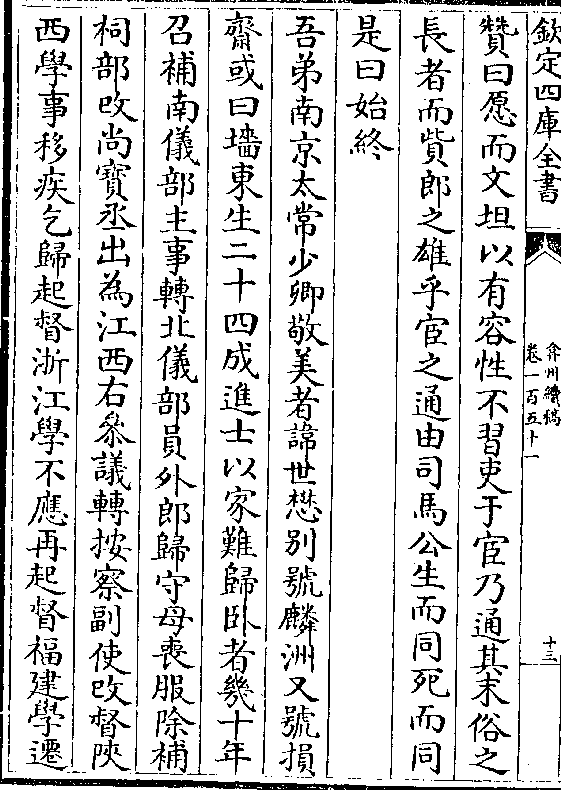 欽定四庫全書
弇州續稿
卷一百五十一
十三
贊曰愿而文坦以有容性不習吏于宦乃通其末俗之
長者而貲郎之雄乎宦之通由司馬公生而同死而同
是曰始終
吾弟南京太常少卿敬美者諱世懋别號麟洲又號損
齋或曰墻東生二十四成進士以家難歸卧者幾十年
召補南儀部主事轉北儀部員外郎歸守母喪服除補
祠部改尚寶丞出為江西右叅議轉按察副使改督陜
西學事移疾乞歸起督浙江學不應再起督福建學遷